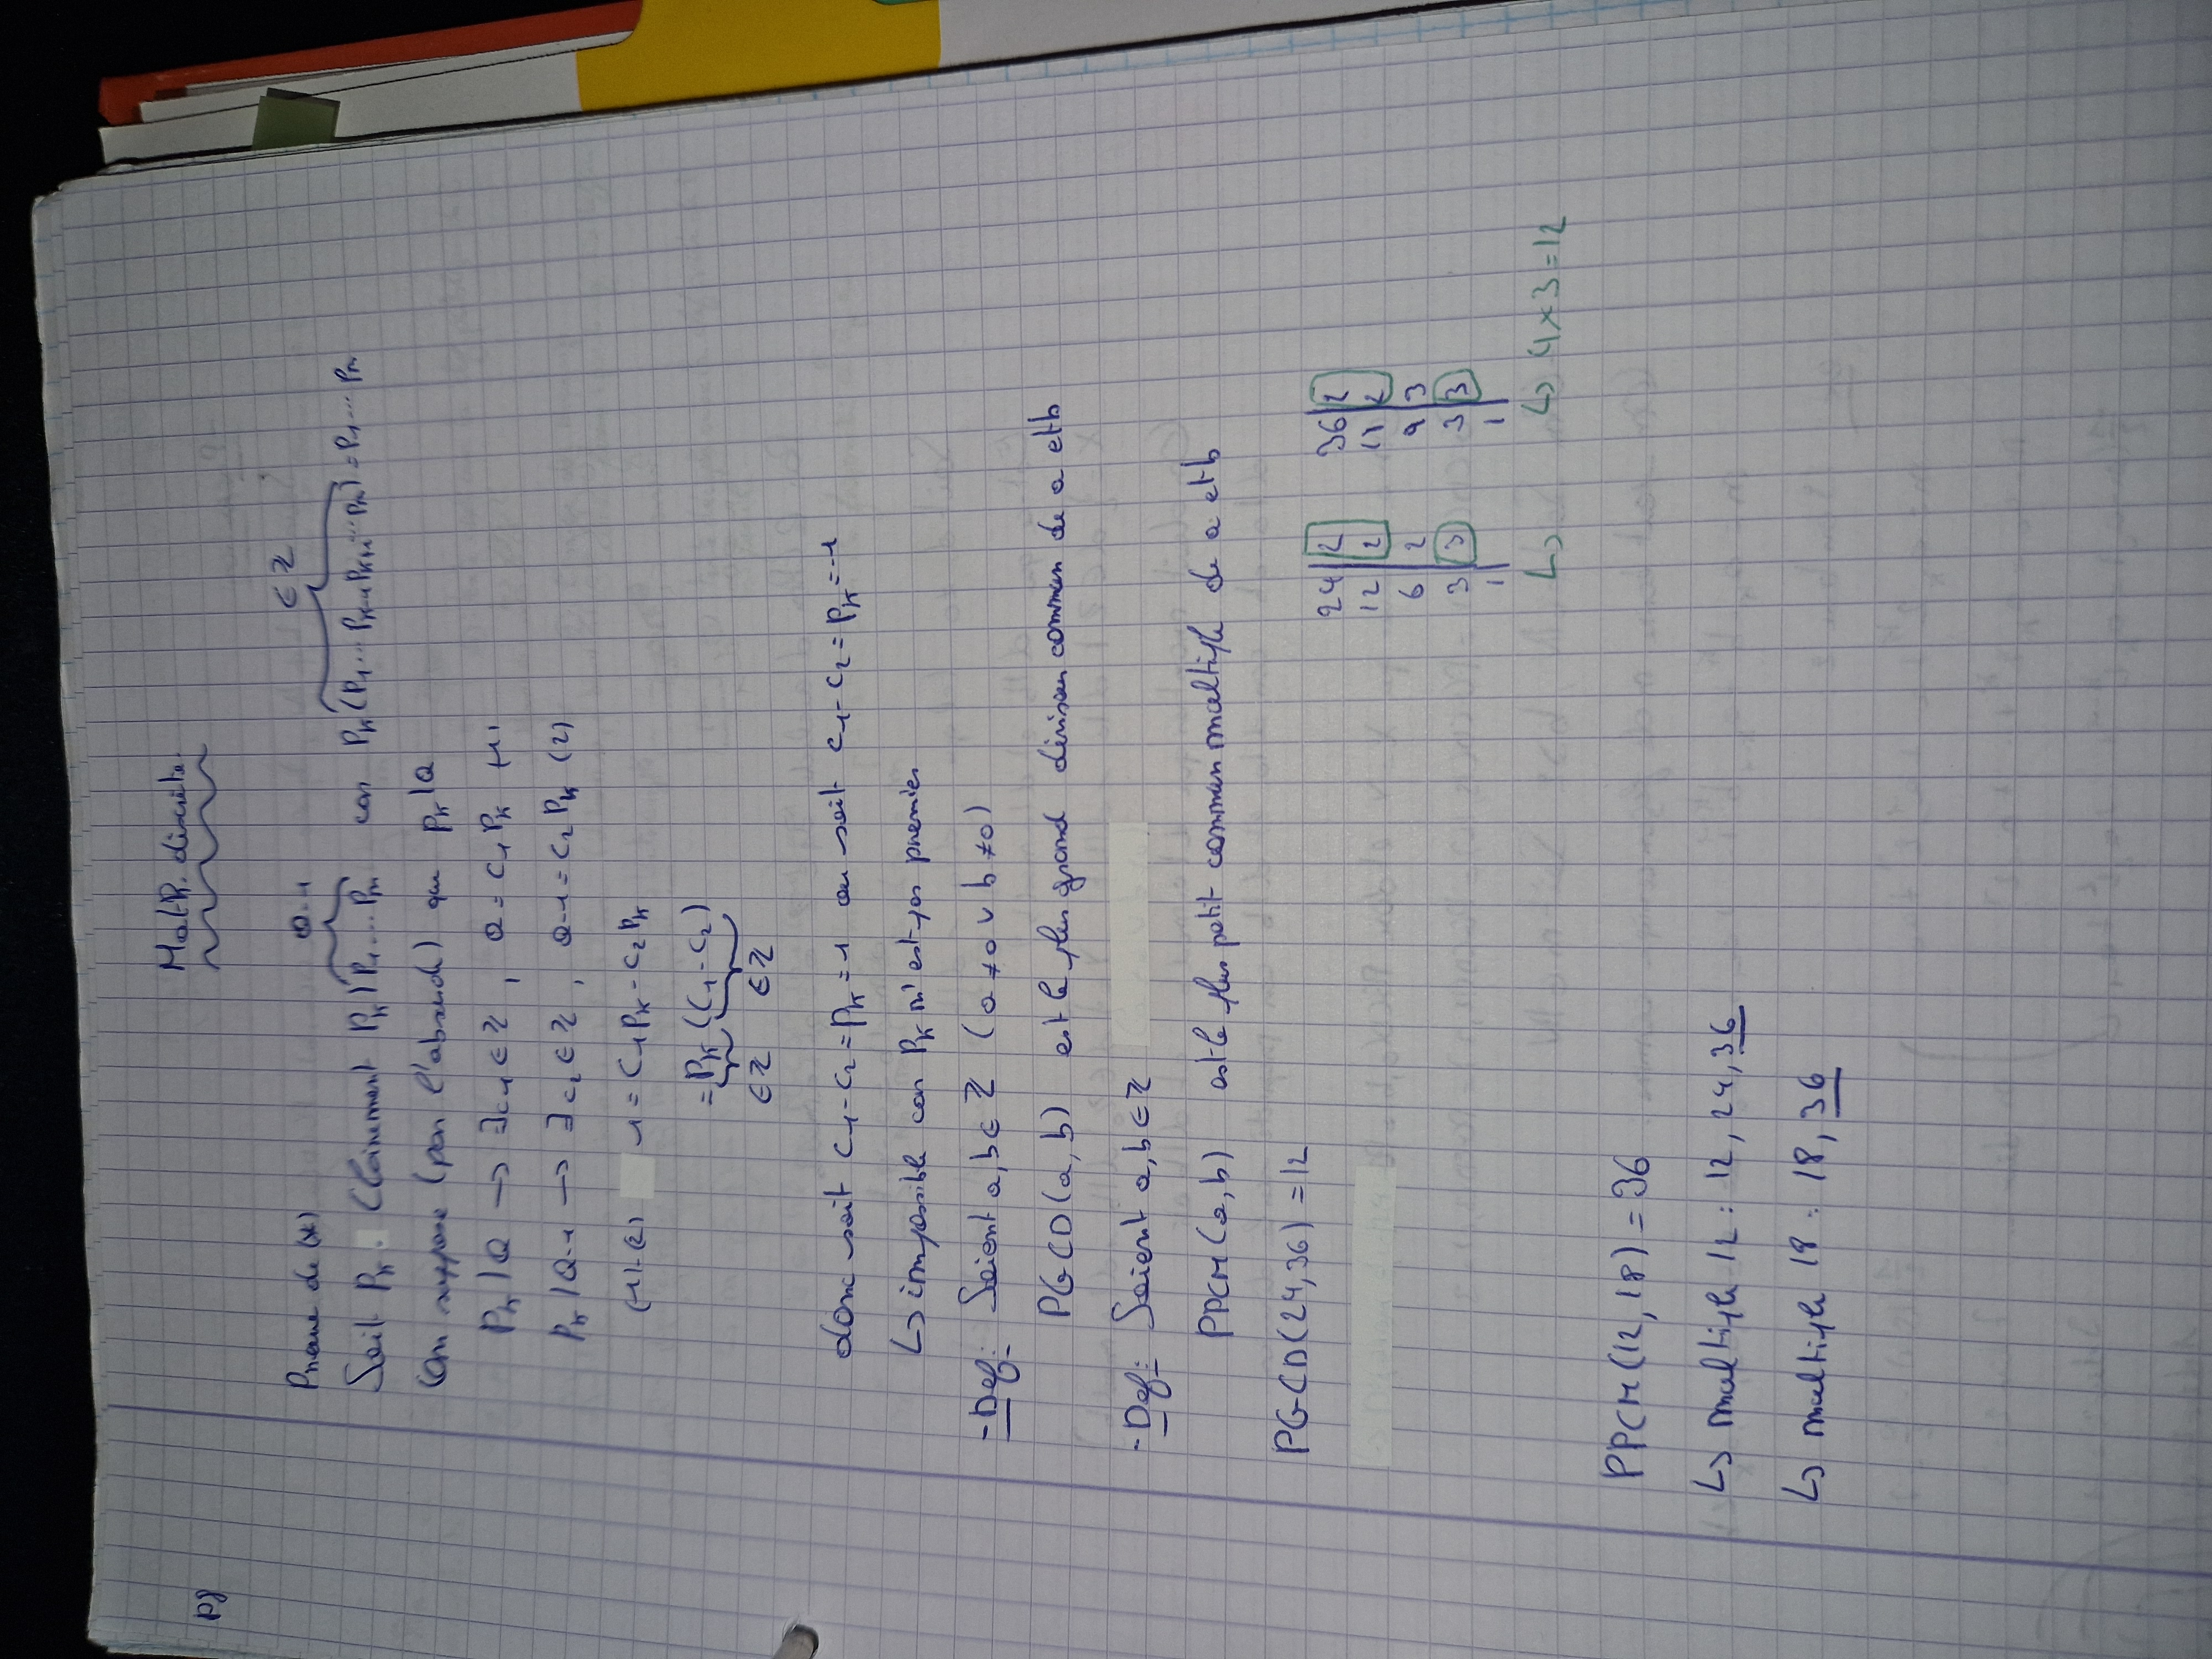 Math. discrète
p8
Preuve de (*)
Q-1
∈ ℤ
Soit Pk. Clairement Pk | P1...Pm car Pk (P1... Pk-1 Pk+1 ... Pm) = P1... Pm
On suppose (par l'absurde) que pk | Q
Pk | Q → ∃ c1 ∈ ℤ , Q = c1 Pk (1)
Pk | Q-1 → ∃ c2 ∈ ℤ , Q-1 = c2 Pk (2)
(1)-(2) 1 = c1 Pk - c2 Pk
= Pk (c1 - c2)
∈ ℤ ∈ ℤ
donc soit c1 - c2 = pk = 1 ou soit c1 - c2 = pk = -1
↳ impossible car Pk n'est pas premier
- Def: Soient a, b ∈ ℤ (a ≠ 0 ∨ b ≠ 0)
PGCD(a, b) est le plus grand diviseur commun de a et b
- Def: Soient a, b ∈ ℤ
PPCM(a, b) est le plus petit commun multiple de a et b
PGCD(24,36) = 12
24 | 2 36 | 2
12 | 2 18 | 2
6 | 2 9 | 3
3 | 3 3 | 3
1 | 1 |
↳ ↳ 4 x 3 = 12
PPCM(12, 18) = 36
↳ multiple 12 : 12, 24, 36
↳ multiple 18 : 18, 36